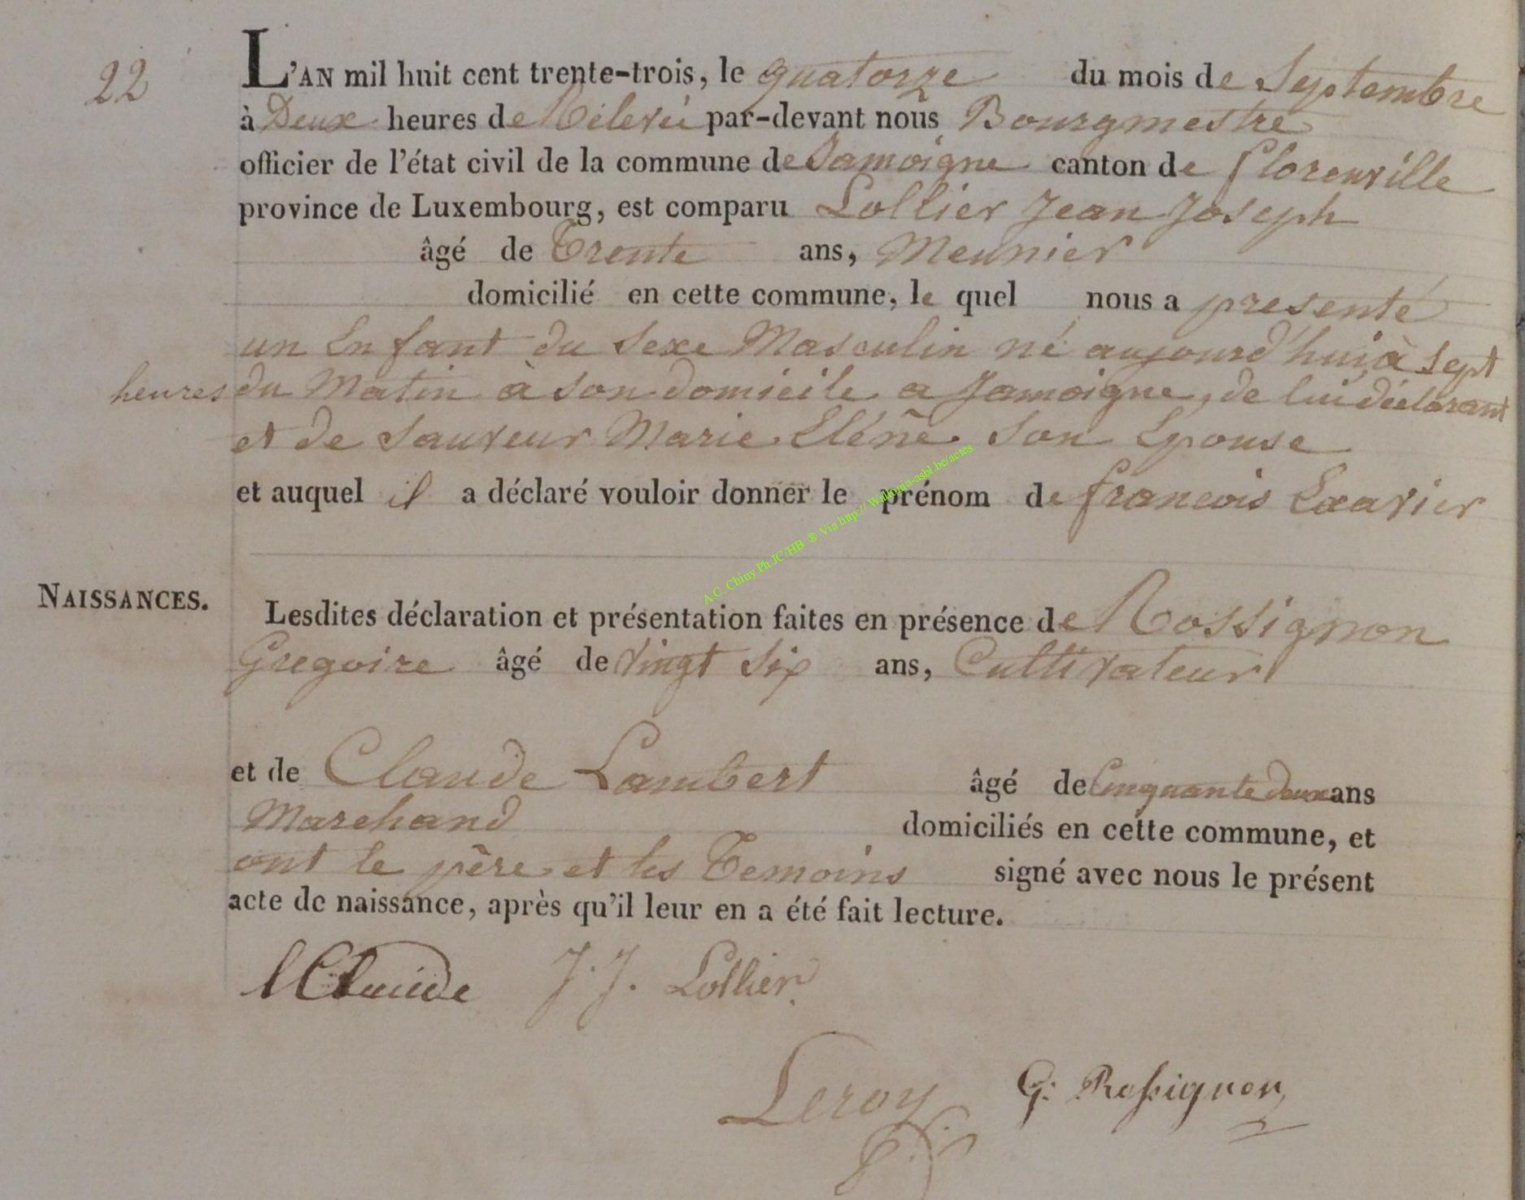 22
L'AN mil huit cent trente-trois, le quatorze du mois de Septembre
à Deux heures de Rélevéé par-devant nous Bourgmestre
officier de l'état civil de la commune de Jamoigne canton de florenville
province de Luxembourg, est comparu Lollier Jean Joseph
âgé de Trente ans, Meunier
domicilié en cette commune, le quel nous a presenté
un Enfant du Sexe Masculin né aujourd'hui à Sept
heures du Matin à son domicile a Jamoigne, de lui déclarant
et de Sauveur Marie Eléñe Son Epouse
et auquel il a déclaré vouloir donner le prénom de francois Exavier
A.C. Chiny Ph JC/HB ® Via http://Wallonia-asbl.be/actes
NAISSANCES.
Lesdites déclaration et présentation faites en présence de Rossignon
Gregoire âgé de Vingt Six ans, Cultivateur
et de Claude Lambert âgé de Cinquante deux ans
Marchand domiciliés en cette commune, et
ont le père et les Temoins signé avec nous le présent
acte de naissance, après qu'il leur en a été fait lecture.
l Claude J. J. Lollier
Leroy G: Rossignon